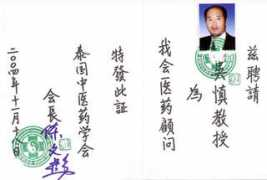 兹聘請
吳慎教授
為
我会医药顾问
特發此証
泰国中医药学会
会長
二〇〇四年十一月十八日